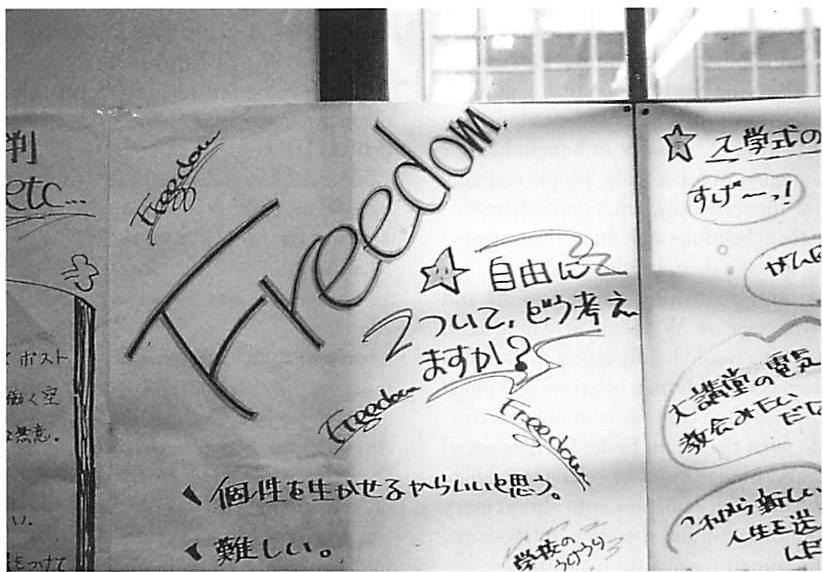 判
etc...
ポスト
働く
無意。
い。
をつけて
Freedom
Freedom
☆自由に
ついて、どう考え
ますか?
Freedom
Freedom
、個性を生かせるからいいと思う。
、難しい。
学校の
うけうり
☆入学式の
すげ〜っ!
大講堂の電気
教会みたい
だな
これから新しい
人生を送
んだ